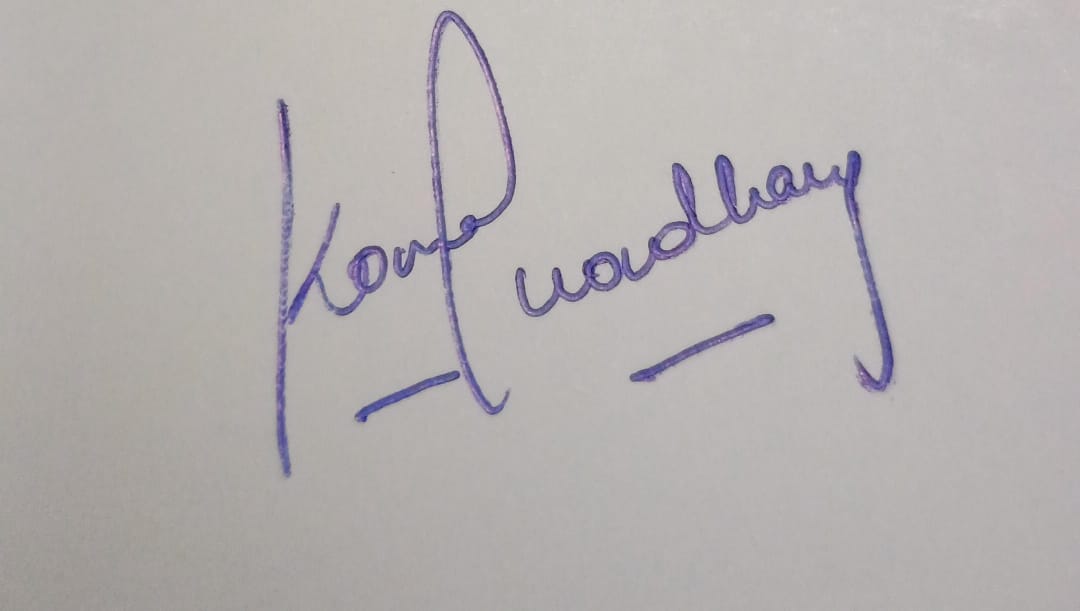 Komal Choudhary